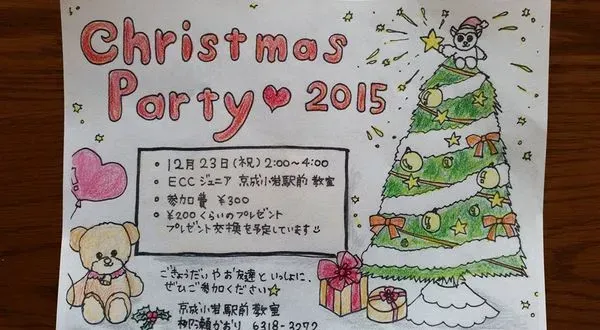 Christmas
Party♥2015
• 12月23日(祝) 2:00~4:00
• ECCジュニア 京成小岩駅前 教室
• 参加費 ¥300
• ¥200くらいのプレゼント
プレゼント交換を予定しています
ごきょうだいやお友達といっしょに、
ぜひご参加ください☆
京成小岩駅前教室
柳瀬かおり 6318-3272